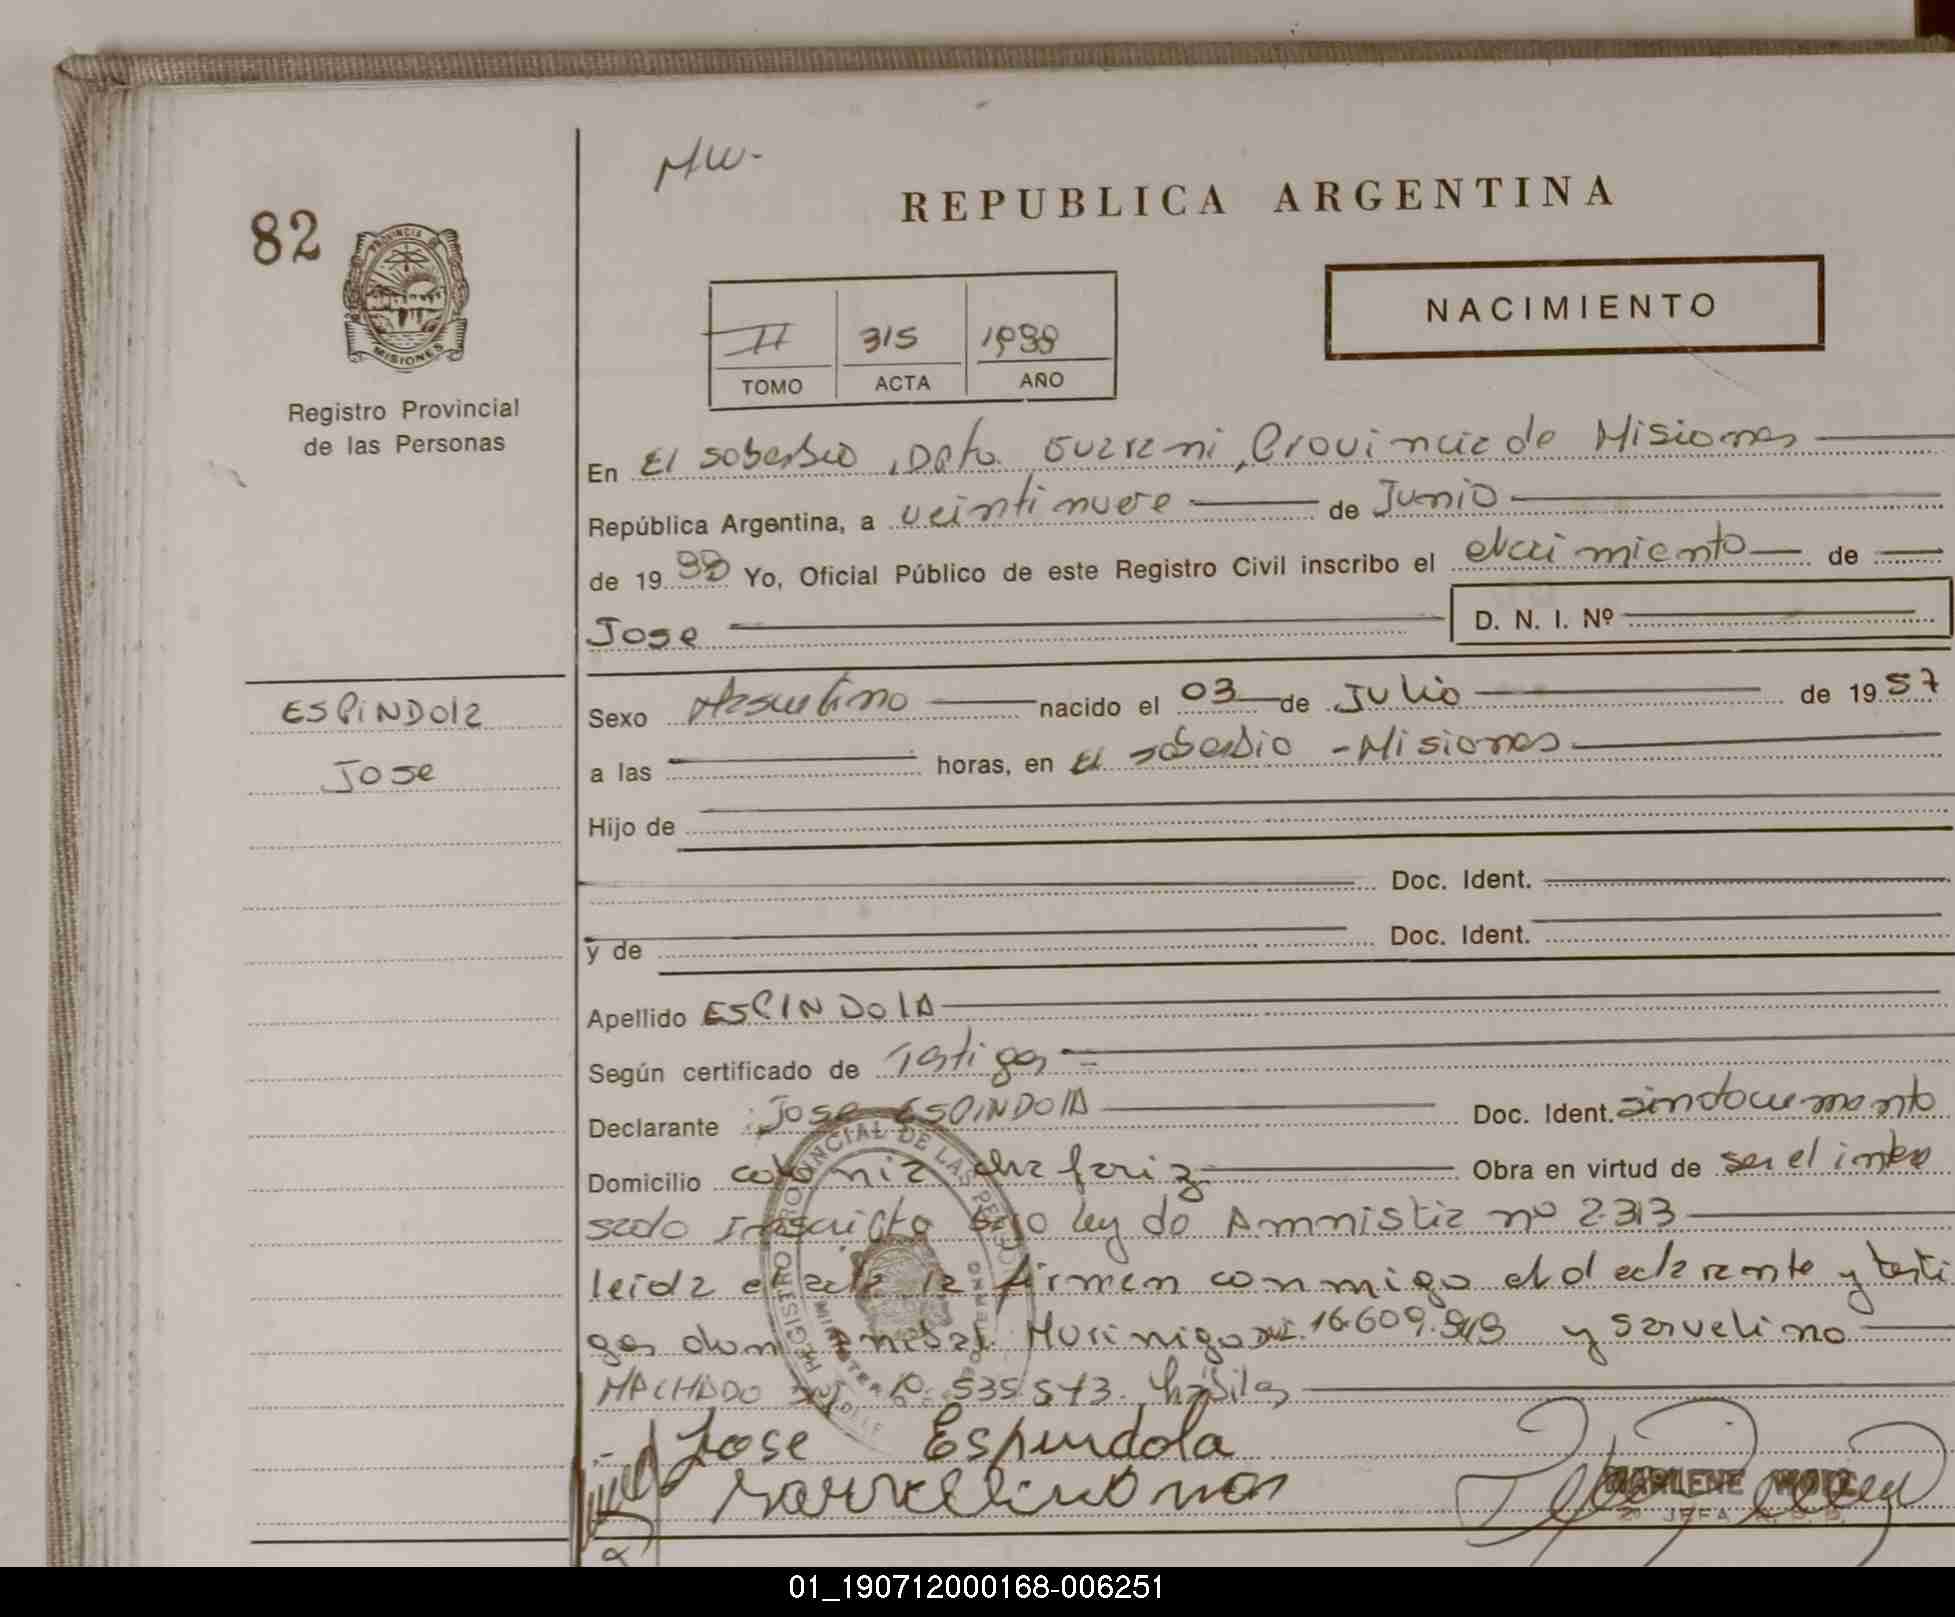 MW-
82
REPUBLICA ARGENTINA
PROVINCIA DE
MISIONES
Registro Provincial
de las Personas
II 315 1988
TOMO ACTA AÑO
NACIMIENTO
En El soberbio, Dpto. Guarani, Provincia de Misiones
República Argentina, a veintinueve de Junio
de 19 88 Yo, Oficial Público de este Registro Civil inscribo el Nacimiento de
Jose D. N. I. Nº
ESPINDOla
Jose
Sexo Masculino nacido el 03 de Julio de 19 57
a las horas, en El soberbio - Misiones
Hijo de
Doc. Ident.
y de Doc. Ident.
Apellido ESPINDOlA
Según certificado de Testigos =
Declarante Jose ESPINDOlA Doc. Ident. sindocumento
Domicilio colonia chafariz Obra en virtud de ser el intere
sado Inscripto bajo ley de Amnistia nº 2313
leida el acta la firmen conmigo el declarante y testi
gos don Anibal Murinigo DNI. 16.609.949 y Sarvelino
MACHADO DNI 10.535.573. hábiles
Jose Espindola
MARLENE
JEFA
REGISTRO PROVINCIAL DE LAS PERSONAS
01_190712000168-006251